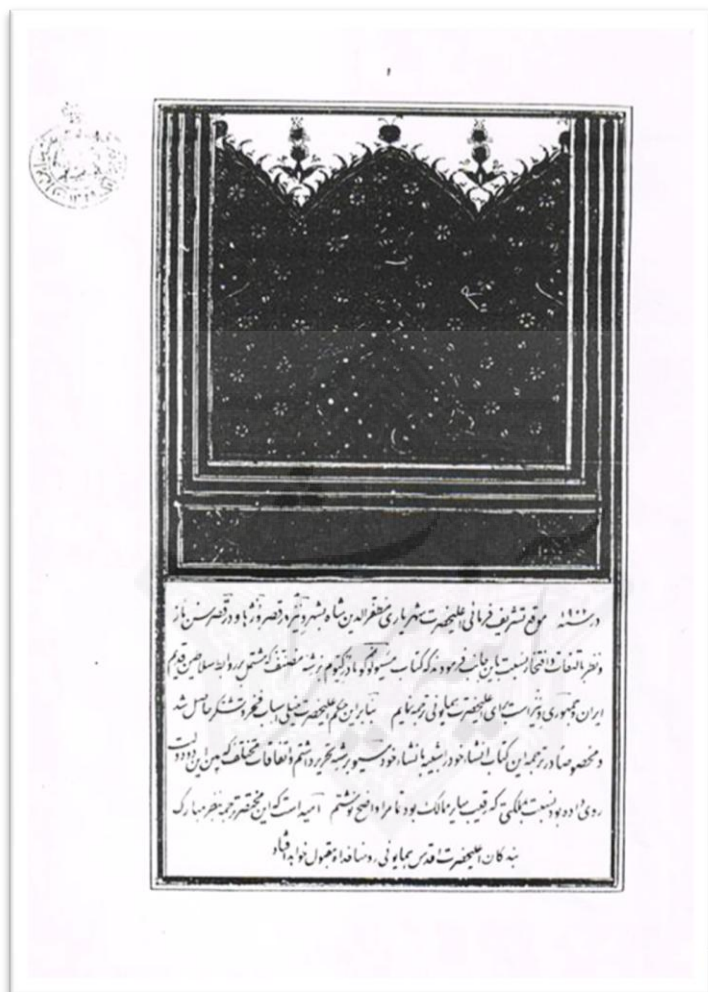 ۱
در سنه ۱۹۰۰ موقع تشریف فرمائی اعلیحضرت شهریاری مظفرالدین شاه بشهر ونیز و در قصر و نزها و در قصر سنن ناز
و نظر بالتفات و افتخار نسبت باین جانب فرمودند که کتاب مسیو برشه مصنف که مشتمل بر روابط سلاطین قدیم
ایران و جمهوری ونیز است برای اعلیحضرت همایونی ترجمه نمایم بنابراین حکم اعلیحضرت خیلی اسباب فخر و تشکر حاصل شد
و مخصوصاً در ترجمه این کتاب انشاء خود را شبیه بانشاء خود مسیو برشه تحریر داشتم و اتفاقات مختلف که بین این دو دولت
روی داده بود نسبت بمملکتی که رقیب سایر ممالک بود تماماً واضح نوشتم امید است که این مختصر ترجمه بنظر مبارک
بندگان اعلیحضرت اقدس همایونی روحنا فداه مقبول خواهد افتاد